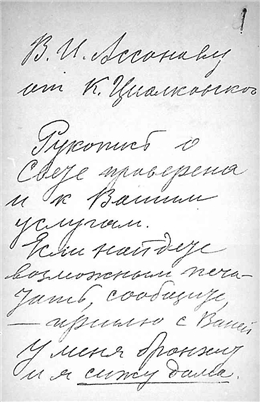 1
В. И. Ассонову
от К. Циолковского
Рукопись о
Свете проверена
и к Вашим
услугам.
Если найдете
возможным печа-
тать, сообщите,
— пришлю с Ваней
У меня бронхит
и я сижу дома.